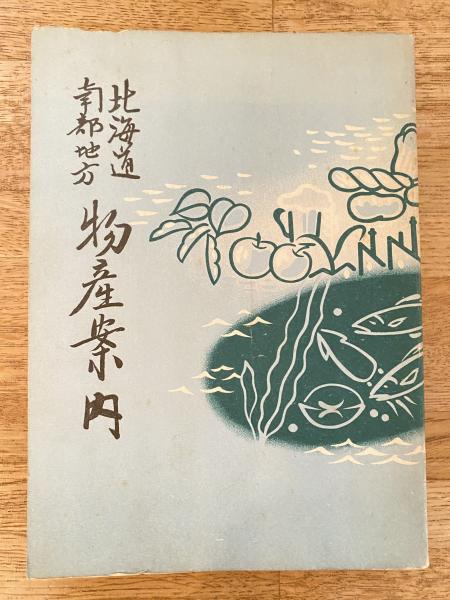 北海道
南部地方
物産案内